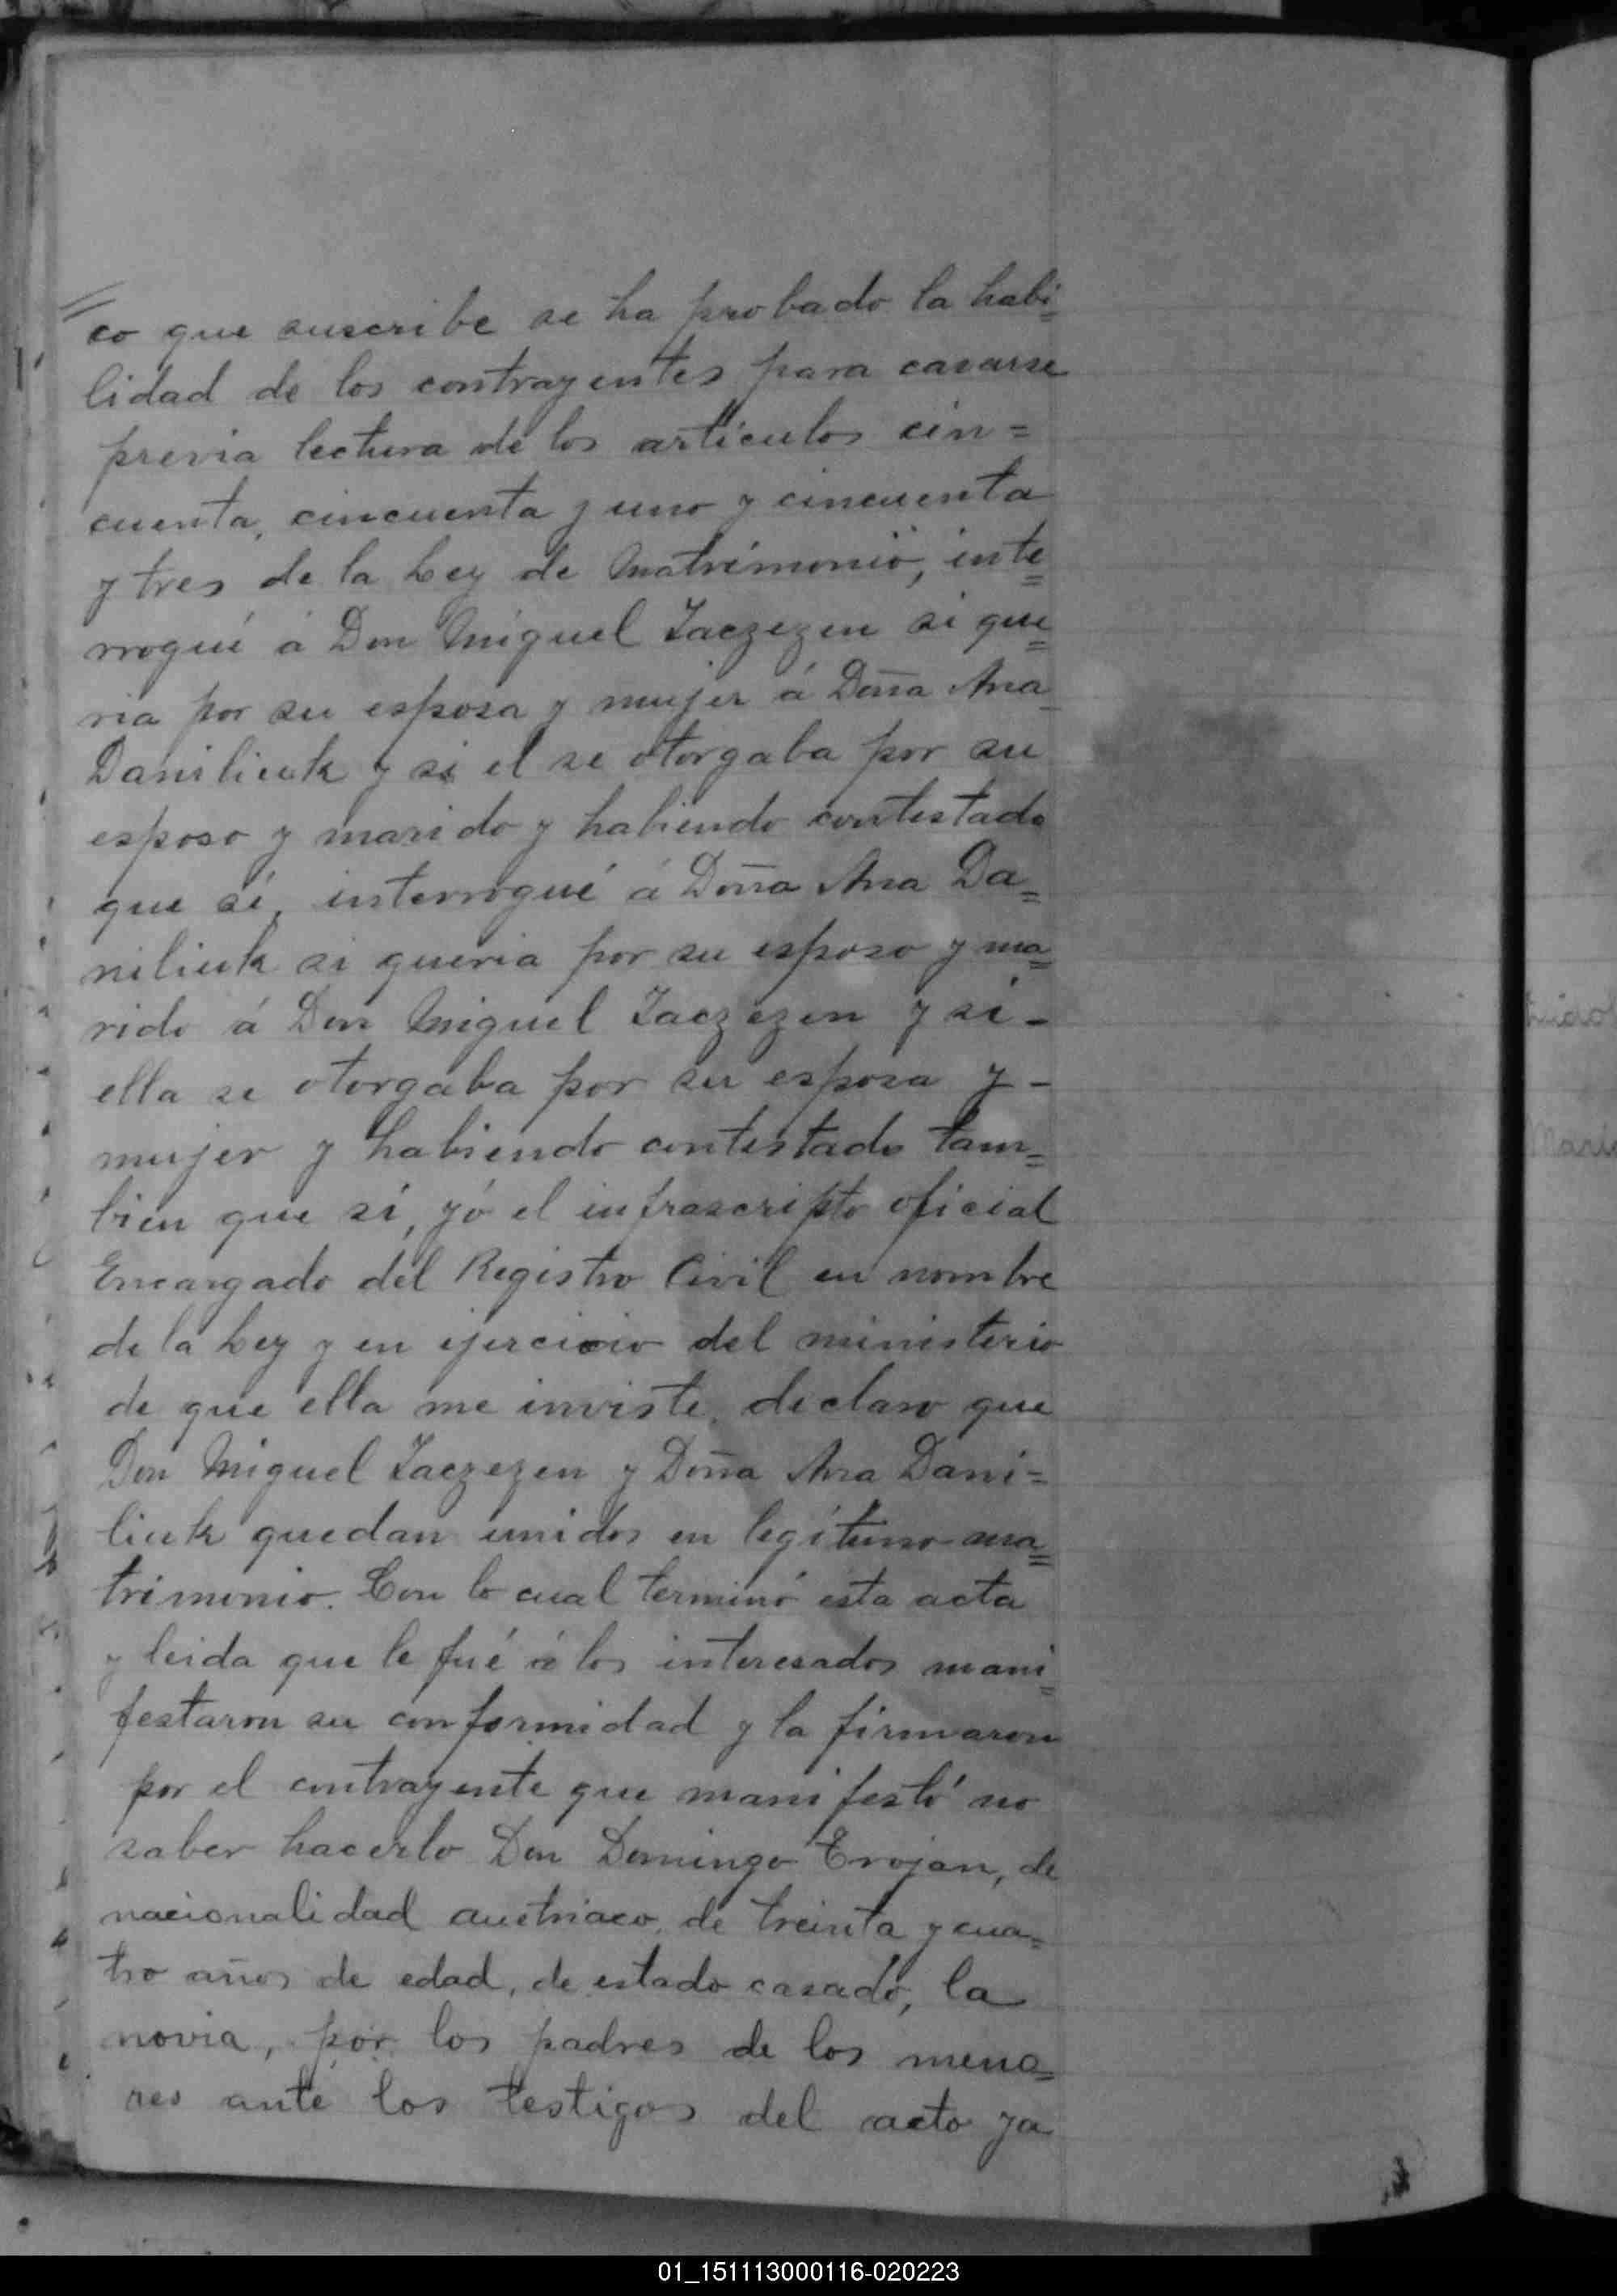 co que suscribe se ha probado la habi=
lidad de los contrayentes para casarse
previa lectura de los artículos cin=
cuenta, cincuenta y uno y cincuenta
y tres de la Ley de Matrimonio, inte=
rrogué á Don Miguel Iaczezen si que=
ria por su esposa y mujer á Doña Ana
Daniliuk y si el se otorgaba por su
esposo y marido y habiendo contestado
que sí, interrogué á Doña Ana Da=
niliuk si queria por su esposo y ma=
rido á Don Miguel Iaczezen y si -
ella se otorgaba por su esposa y -
mujer y habiendo contestado tam=
bien que sí, yó el infrascripto oficial
Encargado del Registro Civil en nombre
de la Ley y en ejercicio del ministerio
de que ella me inviste, declaro que
Don Miguel Iaczezen y Doña Ana Dani=
liuk quedan unidos en legítimo ma=
trimonio. Con lo cual terminó esta acta
y leida que le fué á los interesados mani=
festaron su conformidad y la firmaron
por el contrayente que manifestó no
saber hacerlo Don Domingo Trojan, de
nacionalidad austriaco, de treinta y cua=
tro años de edad, de estado casado, la
novia, por los padres de los meno=
res ante los testigos del acto ya
01_151113000116-020223